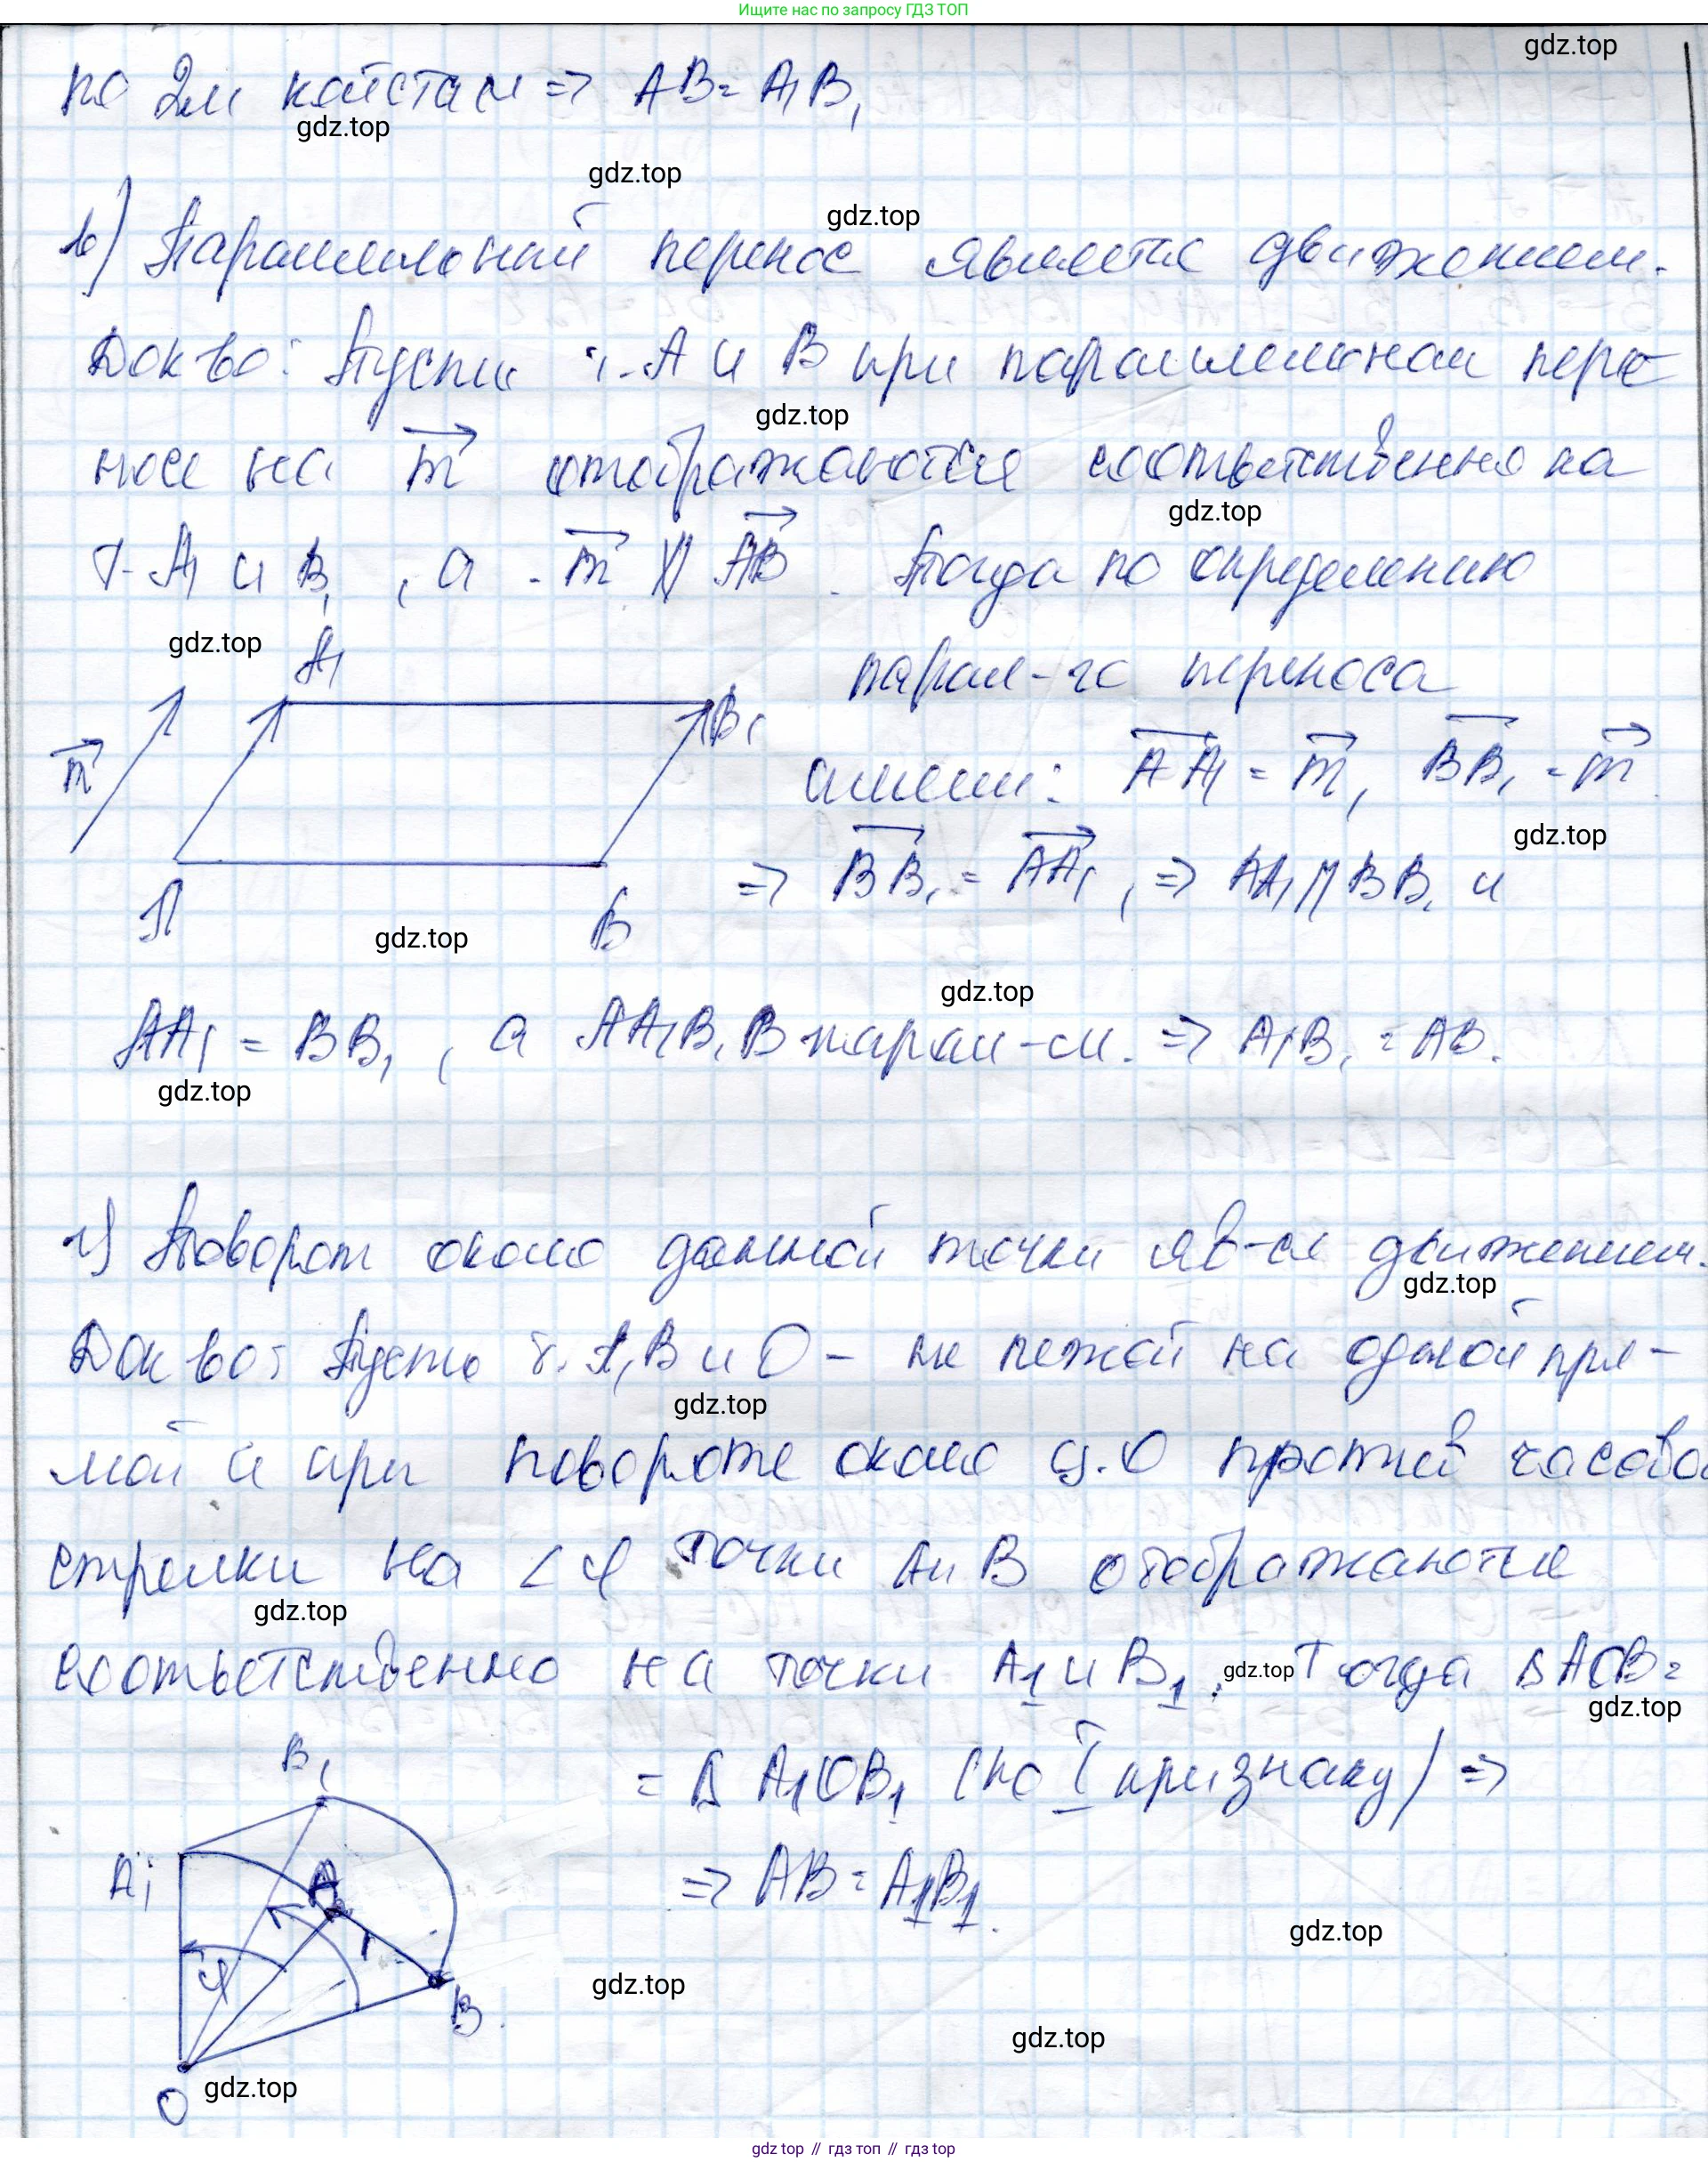 Ищите нас по запросу ГДЗ ТОП
gdz.top
по 2м катетам => AB = A₁B₁
gdz.top
gdz.top
gdz.top
в) Параллельный перенос является движением.
Док-во: Пусть т. A и B при параллельном пере-
gdz.top
носе на m отображаются соответственно на
gdz.top
т. A₁ и B₁, а m ∦ AB. Тогда по определению
gdz.top
A₁
парал-го переноса
B₁
m
имеем: AA₁ = m, BB₁ = m
gdz.top
=> BB₁ = AA₁, => AA₁ || BB₁ и
A
B
gdz.top
gdz.top
AA₁ = BB₁, а AA₁B₁B парал-м. => A₁B₁ = AB.
gdz.top
г) Поворот около данной точки яв-ся движением.
gdz.top
Док-во: Пусть т. A, B и O - не лежат на одной пря-
gdz.top
мой и при повороте около т. O против часовой
стрелки на ∠φ точки A и B отображаются
gdz.top
соответственно на точки A₁ и B₁. gdz.top Тогда ΔAOB =
gdz.top
B₁
= Δ A₁OB₁ (по I признаку) =>
A₁
A
=> AB = A₁B₁.
gdz.top
φ
gdz.top
B
gdz.top
gdz.top
O
gdz top // гдз топ // гдз top